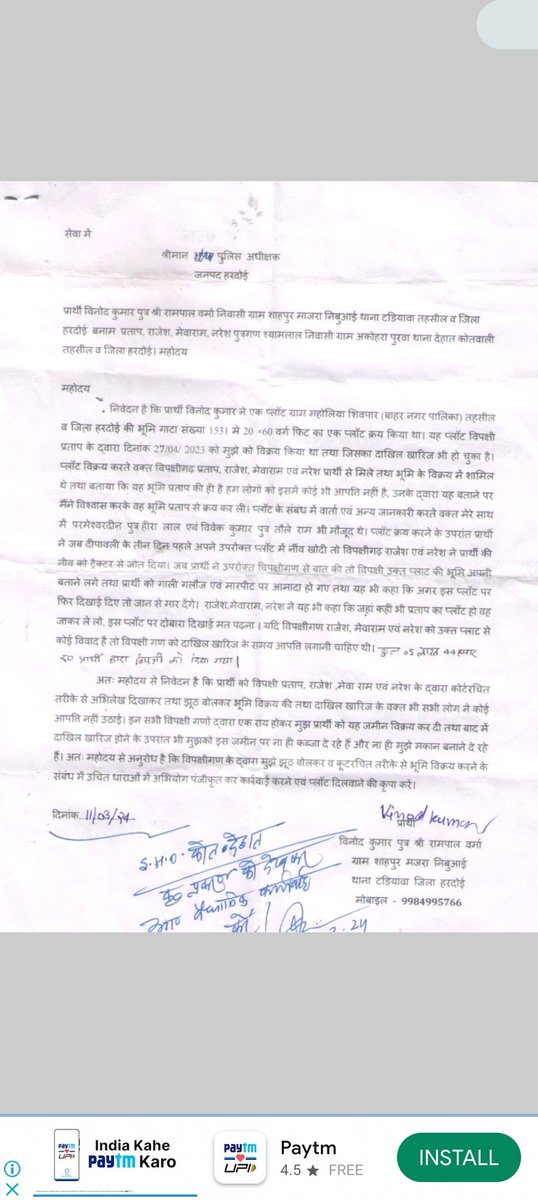 सेवा में
श्रीमान पुलिस अधीक्षक
जनपद हरदोई
प्रार्थी विनोद कुमार पुत्र श्री रामपाल वर्मा निवासी ग्राम शाहपुर माजरा निबुआई थाना टडियावा तहसील व जिला
हरदोई बनाम प्रताप, राजेश, मेवाराम, नरेश पुत्रगण श्यामलाल निवासी ग्राम अकोहरा पुरवा थाना देहात कोतवाली
तहसील व जिला हरदोई। महोदय
महोदय
निवेदन है कि प्रार्थी विनोद कुमार ने एक प्लॉट ग्राम महोलिया शिवपार (बाहर नगर पालिका) तहसील
व जिला हरदोई की भूमि गाटा संख्या 1531 मे 20 ×60 वर्ग फिट का एक प्लॉट क्रय किया था। यह प्लॉट विपक्षी
प्रताप के द्वारा दिनाक 27/04/ 2023 को मुझे को विक्रय किया था तथा जिसका दाखिल खारिज भी हो चुका है।
प्लॉट विक्रय करते वक्त विपक्षीगढ़ प्रताप, राजेश, मेवाराम एवं नरेश प्रार्थी से मिले तथा भूमि के विक्रय में शामिल
थे तथा बताया कि यह भूमि प्रताप की ही है हम लोगों को इसमें कोई भी आपति नहीं है, उनके द्वारा यह बताने पर
मैंने विश्वास करके वह भूमि प्रताप से क्रय कर ली। प्लॉट के संबंध में वार्ता एवं अन्य जानकारी करते वक्त मेरे साथ
में परमेश्वरदीन पुत्र हीरा लाल एवं विवेक कुमार पुत्र तौले राम भी मौजूद थे। प्लॉट क्रय करने के उपरांत प्रार्थी
ने जब दीपावली के तीन दिन पहले अपने उपरोक्त प्लॉट में नींव खोदी तो विपक्षीगढ़ राजेश एवं नरेश ने प्रार्थी की
नीव को ट्रैक्टर से जोत दिया। जब प्रार्थी ने उपरोक्त विपक्षीगण से बात की तो विपक्षी उक्त प्लाट की भूमि अपनी
बताने लगे तथा प्रार्थी को गाली गलौज एवं मारपीट पर आमादा हो गए तथा यह भी कहा कि अगर इस प्लॉट पर
फिर दिखाई दिए तो जान से मार देंगे। राजेश,मेवाराम, नरेश ने यह भी कहा कि जहा कहीं भी प्रताप का प्लॉट हो वह
जाकर ले लो, इस प्लॉट पर दोबारा दिखाई मत पढ़ना । यदि विपक्षीगण राजेश, मेवाराम एवं नरेश को उक्त प्लाट से
कोई विवाद है तो विपक्षी गण को दाखिल खारिज के समय आपति लगानी चाहिए थी। कुल 05 लाख 44 हजार
रु0 प्रार्थी द्वारा विपक्षी को दिया गया।
अतः महोदय से निवेदन है कि प्रार्थी को विपक्षी प्रताप, राजेश ,मेवा राम एवं नरेश के द्वारा कोटरचित
तरीके से अभिलेख दिखाकर तथा झूठ बोलकर भूमि विक्रय की तथा दाखिल खारिज के वक्त भी सभी लोग ने कोई
आपति नहीं उठाई। इन सभी विपक्षी गणों द्वारा एक राय होकर मुझ प्रार्थी को यह जमीन विक्रय कर दी तथा बाद में
दाखिल खारिज होने के उपरांत भी मुझको इस जमीन पर ना ही कब्जा दे रहे हैं और ना ही मुझे मकान बनाने दे रहे
हैं। अतः महोदय से अनुरोध है कि विपक्षीगण के द्वारा मुझे झूठ बोलकर व कूटरचित तरीके से भूमि विक्रय करने के
संबंध में उचित धाराओं में अभियोग पंजीकृत कर कार्रवाई करने एवं प्लॉट दिलवाने की कृपा करें।
दिनांक 11/03/24
Vinod Kumar
प्रार्थी
विनोद कुमार पुत्र श्री रामपाल वर्मा
ग्राम शाहपुर मजरा निबुआई
थाना टडियावा जिला हरदोई
मोबाइल - 9984995766
S.H.O. कोत0 देहात
प्रकरण को देखकर
वैधानिक कार्यवाही
करें।
India Kahe
paytm Karo
paytm
UPI
Paytm
4.5 ★ FREE
INSTALL